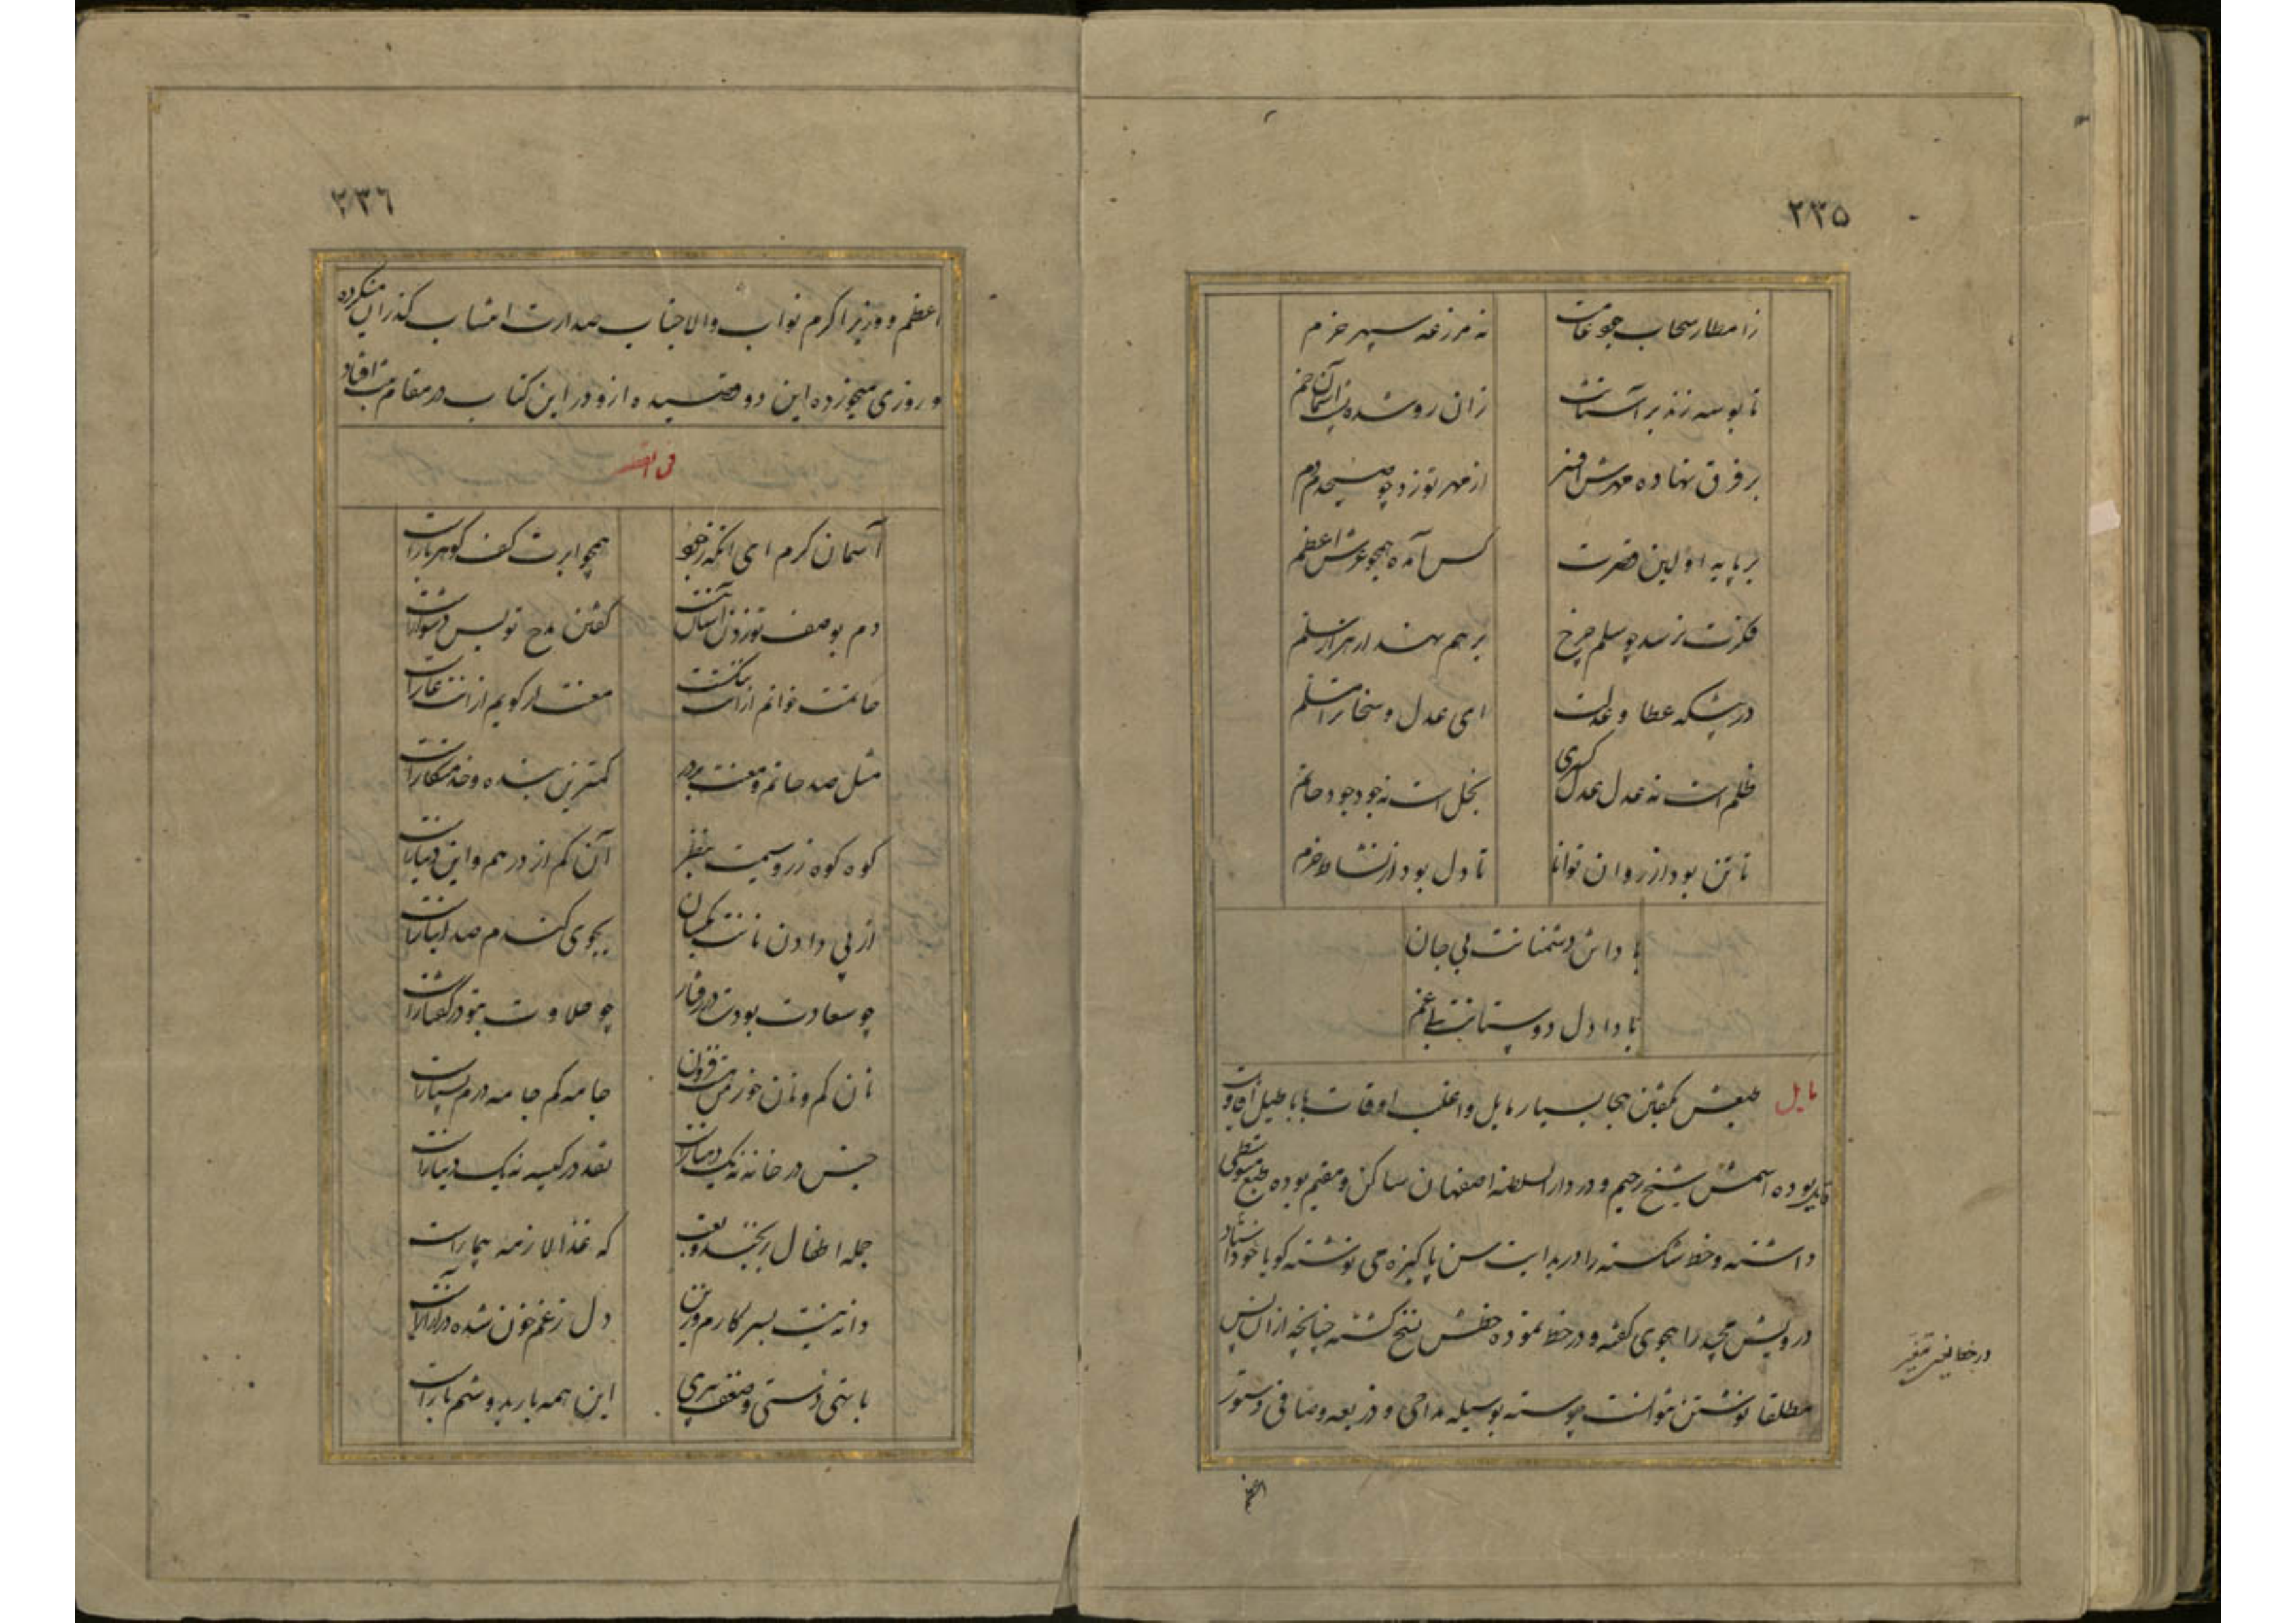 ۲۳۵
ز امطار سحاب جود عامت نه مزرعه سپهر خرم
تا بوسه زند بر آستانت زان رو شده پشت آسمان خم
بر فرق نهاده مهرش افسر از مهر تو زد چو صبحدم دم
بر پایه اولین قصرت کس آمده همچو عرش اعظم
فکرت نرسد چو سلم چرخ بر هم نهد ار هزار سلم
در پیشکه عطا و عدلت ای عدل و سخا ترا مسلم
ظلم است نه عدل عدل کسری بخل است نه جود جود حاتم
تا تن بود از روان توانا تا دل بود از نشاط خرم
بادا تن دشمنانت بی جان
بادا دل دوستانت بی غم
مایل طبعش بکفتن هجا بسیار مایل و اغلب اوقات باباطیل
بوده اسمش شیخ رحیم و در دار السلطنه اصفهان ساکن و مقیم بوده طبع متوسطی
داشته و خط شکسته را در بدایت سن پاکیزه می نوشته کویا خود استاد
درویش مجید را هجوی کفته و در خط نموده خطش نسخ کشته چنانچه از آن پس
مطلقا نوشتن نتوانست پیوسته بوسیله مداحی و ذریعه وصافی دستور
در خط
اعظم
۲۳۶
اعظم و وزیر اکرم نواب والا جناب صدارت انتساب کذران میکرده
و روزی میخورده این دو قصیده ازو در این کتاب در مقام ثبت افتاد
آسمان کرم ای آنکه ز جود همچو ابرت کف کوهربار است
دم بوصف تو زدن آسان نیست کفتن مدح تو بس دشوار است
حاتمت خوانم از آنت ننکست معنت ار کویم از اینت عار است
مثل صد حاتم و معنت بر در کمترین بنده و خدمتکار است
کوه کوه زر و سیمت بنظر آن کم از درهم و این دینار است
از پی دادن نانت یکسان بجوی کندم صد انبار است
چو سعادت بودت در رفتار چو حلاوت بتو در کفتار است
نان کم و نان خور من هست فزون جامه کم جامه درم بسیار است
جنس در خانه نه یک دینار است نقد در کیسه نه یک دینار است
جمله اطفال که غذا لازمه بیمار است
دانه نیست بسر کارم و زین دل ز غم خون شده در آزار است
با تهی دستی و ضعف پیری این همه بار بدوشم بار است